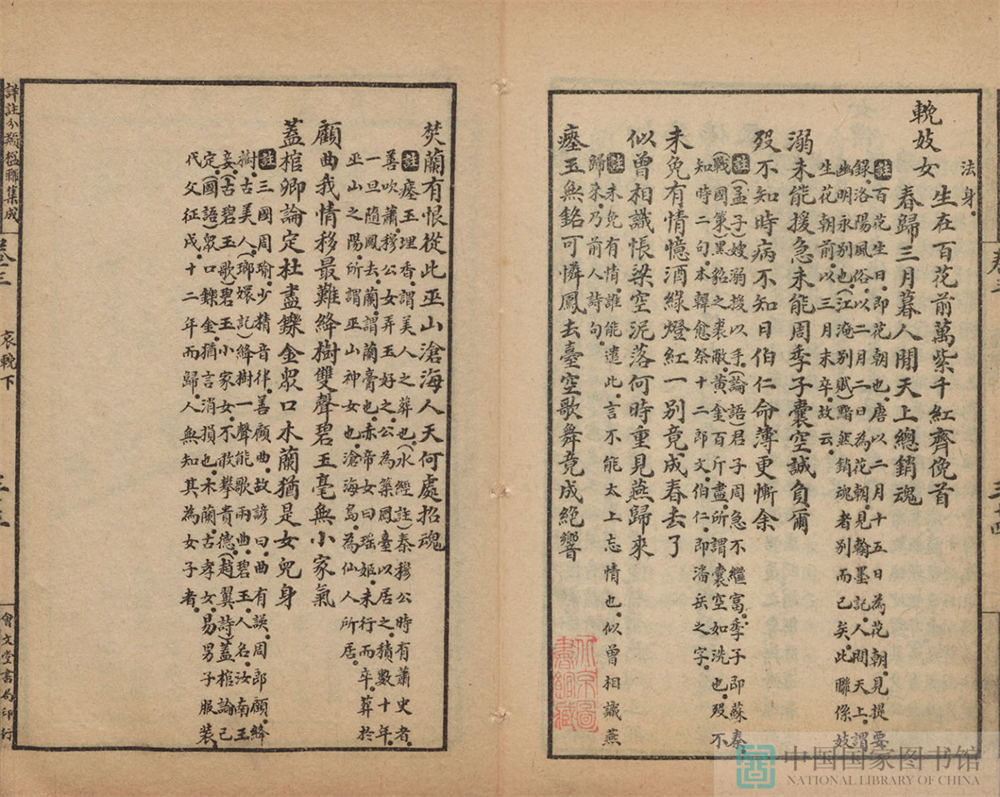 法身
輓妓女
生在百花前萬紫千紅齊俛首
春歸三月暮人間天上總銷魂
註百花生日即花朝也唐以二月十五日為花朝見提要
錄洛陽風俗以二月二日為花朝見翰墨記人間天上謂
幽明永別也江淹別賦黯然銷魂者別而已矣此聯係妓
生花朝前以三月末卒故云
溺未能援急未能周季子囊空誠負爾
歿不知時病不知日伯仁命薄更慚余
註孟子嫂溺援以手論語君子周急不繼富季子即蘇秦
戰國策黑貂之裘敝黃金百斤盡所謂囊空如洗也歿不
知時二句本韓愈祭十二郎文伯仁即潘岳之字
未免有情憶酒綠燈紅一別竟成春去了
似曾相識悵梁空泥落何時重見燕歸來
註未免有情誰能遣此言不能太上忘情也似曾相識燕
歸來乃前人詩句
瘞玉無銘可憐鳳去臺空歌舞竟成絕響
焚蘭有恨從此巫山滄海人天何處招魂
註瘞玉埋香謂美人之葬也水經註秦穆公時有蕭史者
善吹簫穆公女弄玉好之公為築鳳臺以居之積數十年
一旦隨鳳去蘭謂蘭膏也赤帝女曰瑶姬未行而卒葬於
巫山之陽所謂巫山神女也滄海島為仙人所居
顧曲我情移最難絳樹雙聲碧玉毫無小家氣
蓋棺卿論定杜盡鑠金眾口木蘭猶是女兒身
註三國周瑜少精音律善顧曲故諺曰曲有誤周郎顧絳
樹古美人瑯嬛記絳樹一聲能歌兩曲碧玉人名汝南王
妾古碧玉歌碧玉小家女不敢攀貴德趙翼詩蓋棺論已
定國語眾口鑠金猶言消損也木蘭古孝女易男子服裝
代父征戍十二年而歸人無知其為女子者
詳註分類楹聯集成
卷三
哀輓下
三五
會文堂書局印行
中国国家图书馆
NATIONAL LIBRARY OF CHINA